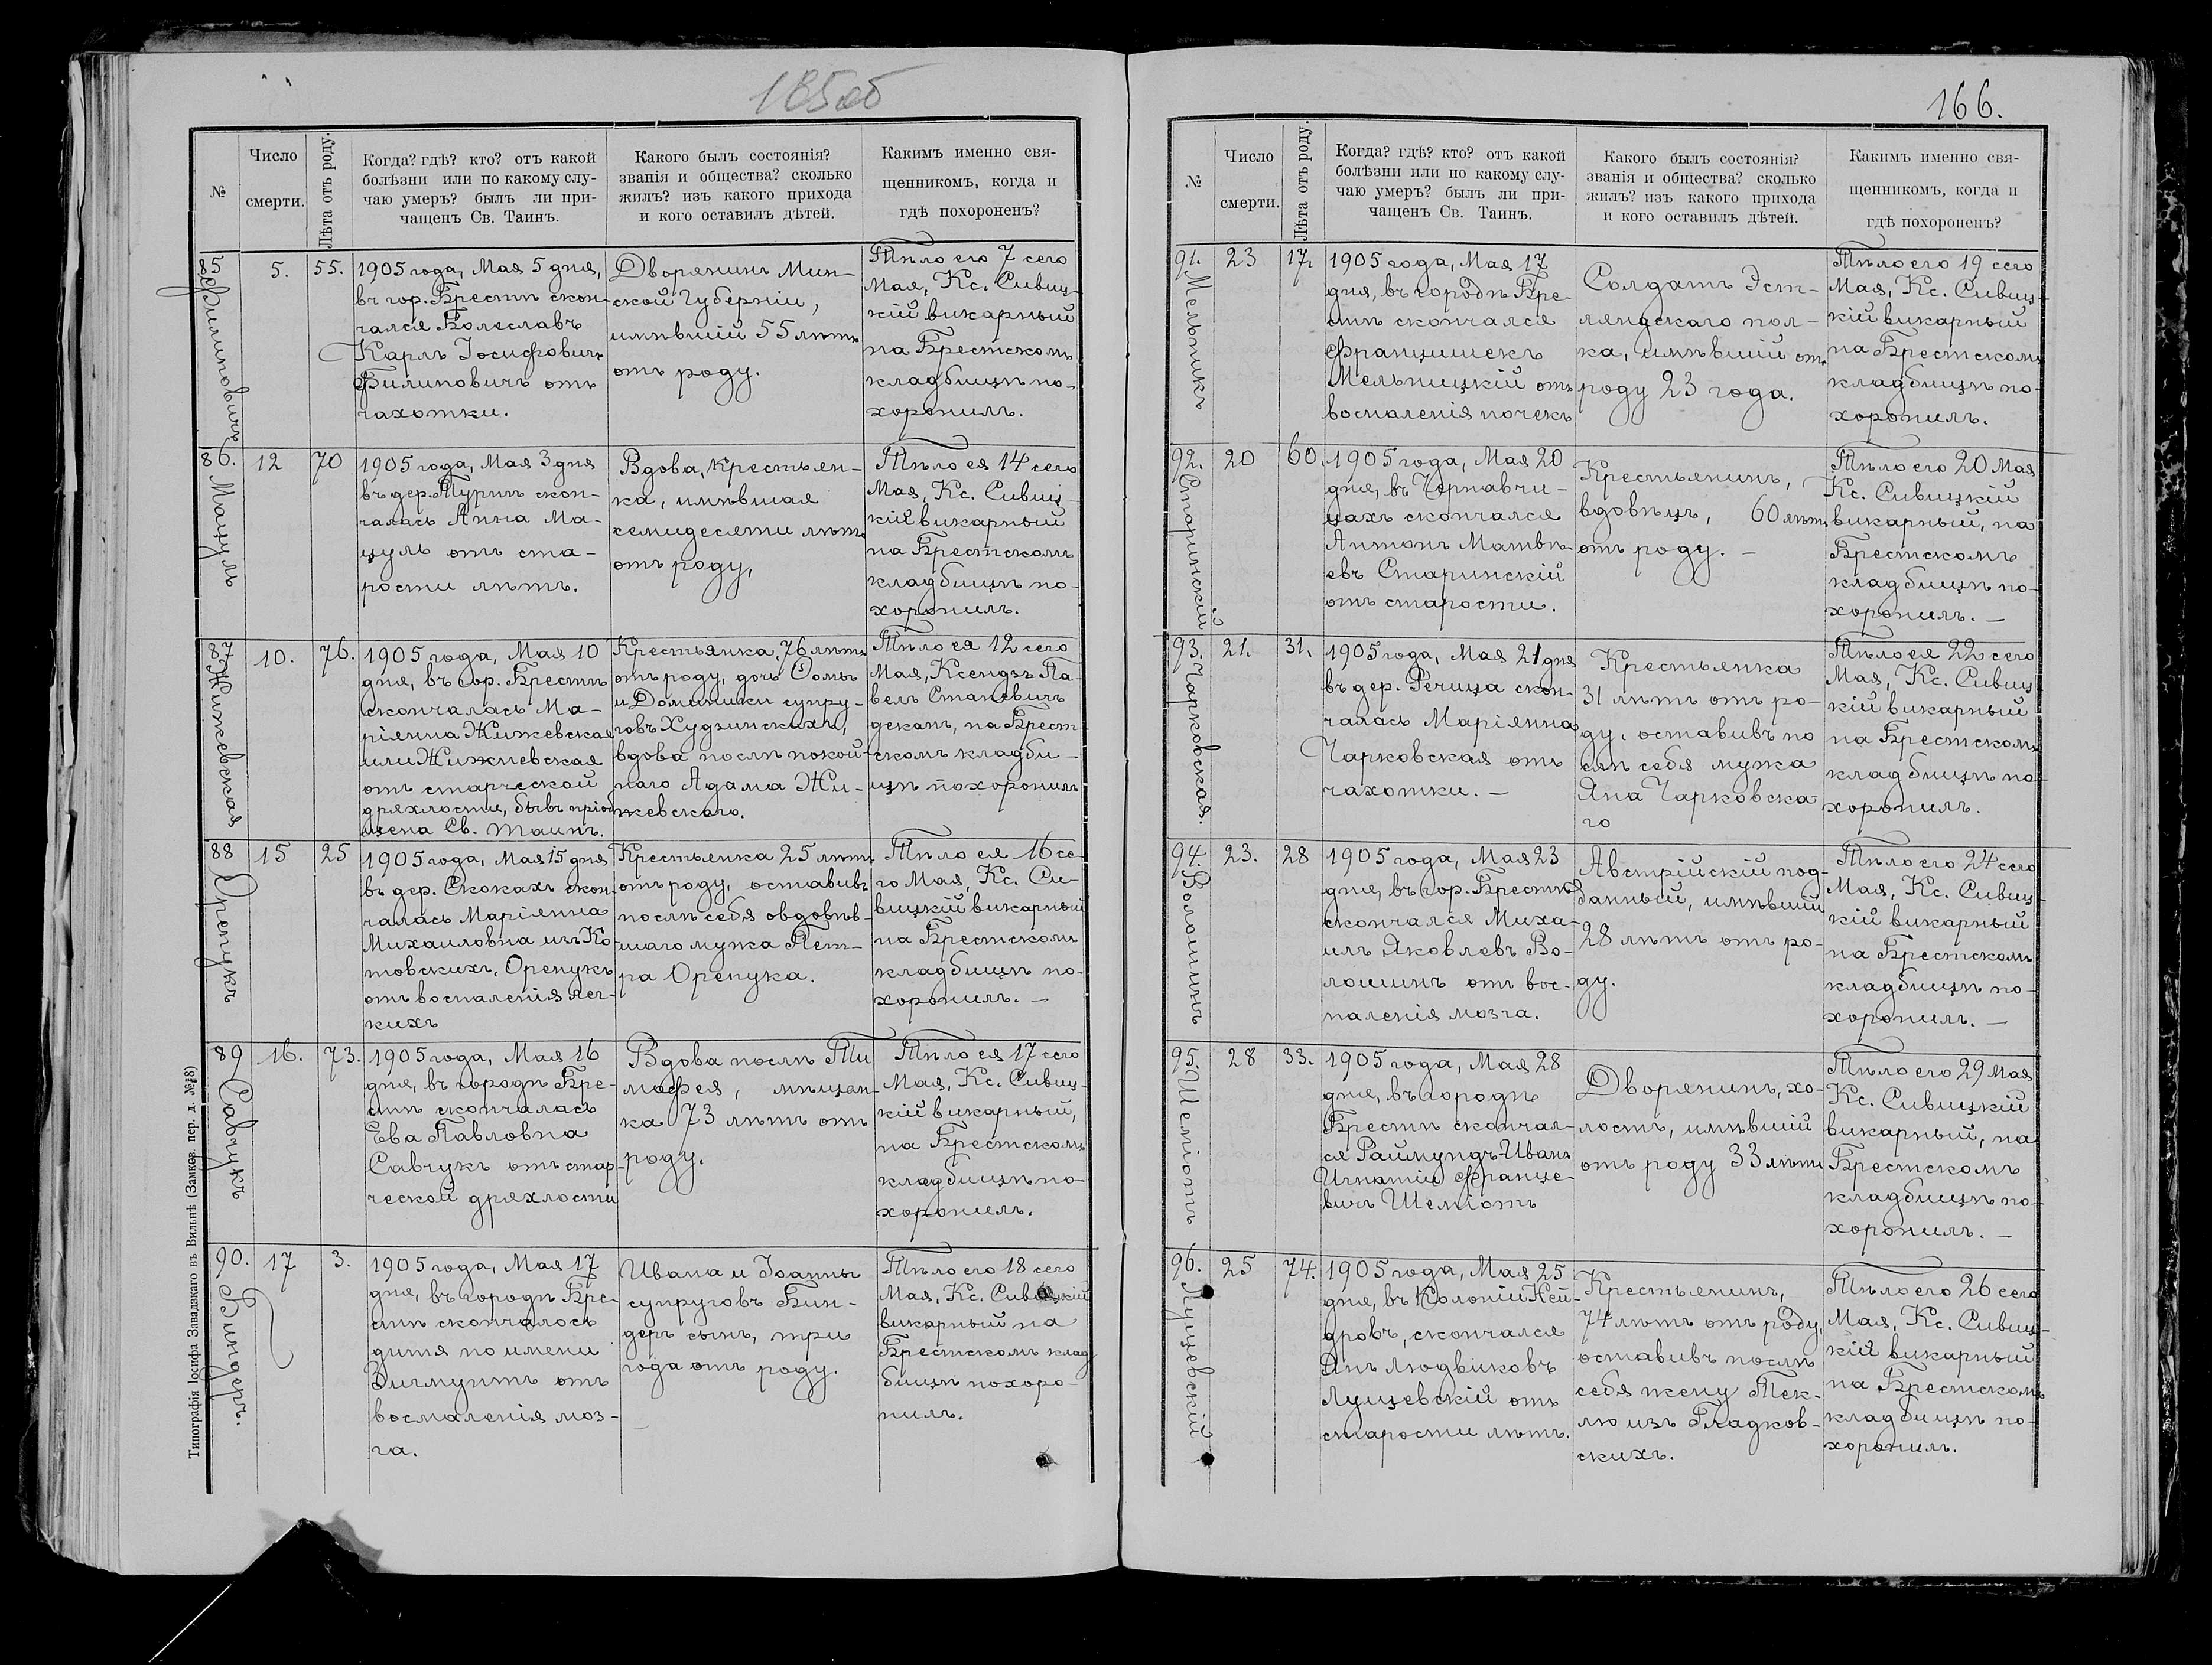 185об
№
Число
смерти.
Лѣта отъ роду.
Когда? гдѣ? кто? отъ какой
болѣзни или по какому слу-
чаю умеръ? былъ ли при-
чащенъ Св. Таинъ.
Какого былъ состоянія?
званія и общества? сколько
жилъ? изъ какого прихода
и кого оставилъ дѣтей.
Какимъ именно свя-
щенникомъ, когда и
гдѣ похороненъ?
85
Филиповичъ
5.
55.
1905 года, Мая 5 дня,
въ гор. Брестѣ скон-
чался Болеславъ
Карлъ Іосифовичъ
Филиповичъ отъ
чахотки.
Дворянинъ Мин-
ской Губерніи,
имѣвшій 55 лѣтъ
отъ роду.
Тѣло его 7 сего
Мая, Кс. Сивиц-
кій викарный
на Брестскомъ
кладбищѣ по-
хоронилъ.
86.
Мацуль
12
70
1905 года, Мая 3 дня
въ дер. Тюринѣ скон-
чалась Анна Ма-
цуль отъ ста-
рости лѣтъ.
Вдова, крестьян-
ка, имѣвшая
семидесяти лѣтъ
отъ роду,
Тѣло ея 14 сего
Мая, Кс. Сивиц-
кій викарный
на Брестскомъ
кладбищѣ по-
хоронилъ.
87
Жижевская
10.
76.
1905 года, Мая 10
дня, въ гор. Брестѣ
скончалась Ма-
ріянна Жижевская
или Жижневская
отъ старческой
дряхлости, бывъ пріоб
щена Св. Таинъ.
Крестьянка, 76 лѣтъ
отъ роду, дочь Ѳомы
и Доминики супру-
говъ Худзинскихъ,
вдова послѣ покой-
наго Адама Жи-
жевскаго.
Тѣло ея 12 сего
Мая, Ксендзъ Па-
велъ Станевичъ
деканъ, на Брест-
скомъ кладби-
щѣ похоронилъ
88
Орепукъ
15
25
1905 года, Мая 15 дня
въ дер. Скокахъ скон
чалась Маріянна
Михаиловна изъ Ко
товскихъ, Орепукъ
отъ воспаленія лег-
кихъ
Крестьянка 25 лѣтъ
отъ роду, оставивъ
послѣ себя овдовѣв-
шаго мужа Пет-
ра Орепука.
Тѣло ея 16 се-
го Мая, Кс. Си-
вицкій викарный
на Брестскомъ
кладбищѣ по-
хоронилъ. —
89
Савчукъ
16.
73.
1905 года, Мая 16
дня, въ городѣ Бре-
стѣ скончалась
Ева Павловна
Савчукъ отъ стар-
ческой дряхлости
Вдова послѣ Ти
мофея, мѣщан-
ка 73 лѣтъ отъ
роду.
Тѣло ея 17 сего
Мая, Кс. Сивиц-
кій викарный,
на Брестскомъ
кладбищѣ по-
хоронилъ.
90.
Биндеръ.
17
3.
1905 года, Мая 17
дня, въ городѣ Бре-
стѣ скончалось
дитя по имени
Зигмунтъ отъ
воспаленія моз-
га.
Ивана и Іоанны
супруговъ Бин-
деръ сынъ, три
года отъ роду.
Тѣло его 18 сего
Мая, Кс. Сивицкій
викарный на
Брестскомъ клад
бищѣ похоро-
нилъ.
Типографія Іосифа Завадзкаго въ Вильнѣ (Замков. пер. д. №8)
166.
№
Число
смерти.
Лѣта отъ роду.
Когда? гдѣ? кто? отъ какой
болѣзни или по какому слу-
чаю умеръ? былъ ли при-
чащенъ Св. Таинъ.
Какого былъ состоянія?
званія и общества? сколько
жилъ? изъ какого прихода
и кого оставилъ дѣтей.
Какимъ именно свя-
щенникомъ, когда и
гдѣ похороненъ?
91.
Мельникъ
23
17.
1905 года, Мая 17
дня, въ городѣ Бре-
стѣ скончался
Францишекъ
Мельницкій отъ
воспаленія почекъ
Солдатъ Эст-
ляндскаго пол-
ка, имѣвшій отъ
роду 23 года.
Тѣло его 19 сего
Мая, Кс. Сивиц-
кій викарный
на Брестскомъ
кладбищѣ по-
хоронилъ.
92.
Старинскій
20
60.
1905 года, Мая 20
дня, въ Чернавчи-
цахъ скончался
Антонъ Матвѣ-
евъ Старинскій
отъ старости.
Крестьянинъ,
вдовецъ, 60 лѣтъ
отъ роду. —
Тѣло его 20 Мая
Кс. Сивицкій
викарный, на
Брестскомъ
кладбищѣ по-
хоронилъ. —
93.
Чарковская.
21.
31.
1905 года, Мая 21 дня
въ дер. Речица скон-
чалась Маріянна
Чарковская отъ
чахотки. —
Крестьянка
31 лѣтъ отъ ро-
ду, оставивъ по
слѣ себя мужа
Яна Чарковска
го
Тѣло ея 22 сего
Мая, Кс. Сивиц-
кій викарный
на Брестскомъ
кладбищѣ по-
хоронилъ.
94.
Волошинъ
23.
28
1905 года, Мая 23
дня, въ гор. Брестѣ
скончался Миха-
илъ Яковлевъ Во-
лошинъ отъ вос-
паленія мозга.
Австрійскій под-
данный, имѣвшій
28 лѣтъ отъ ро-
ду.
Тѣло его 24 сего
Мая, Кс. Сивиц-
кій викарный
на Брестскомъ
кладбищѣ по-
хоронилъ. —
95.
Шеміотъ
28
33.
1905 года, Мая 28
дня, въ городѣ
Брестѣ скончал-
ся Раймундъ-Иванъ
Игнатій Франце-
вичъ Шеміотъ
Дворянинъ, хо-
лостъ, имѣвшій
отъ роду 33 лѣтъ
Тѣло его 29 Мая
Кс. Сивицкій
викарный, на
Брестскомъ
кладбищѣ по-
хоронилъ. —
96.
Лущевскій
25
74.
1905 года, Мая 25
дня, въ Колоніи Ней-
дровъ, скончался
Янъ Людвиковъ
Лущевскій отъ
старости лѣтъ.
Крестьянинъ,
74 лѣтъ отъ роду,
оставивъ послѣ
себя жену Тек-
лю изъ Гладков-
скихъ.
Тѣло его 26 сего
Мая, Кс. Сивиц-
кій викарный
на Брестскомъ
кладбищѣ по-
хоронилъ.